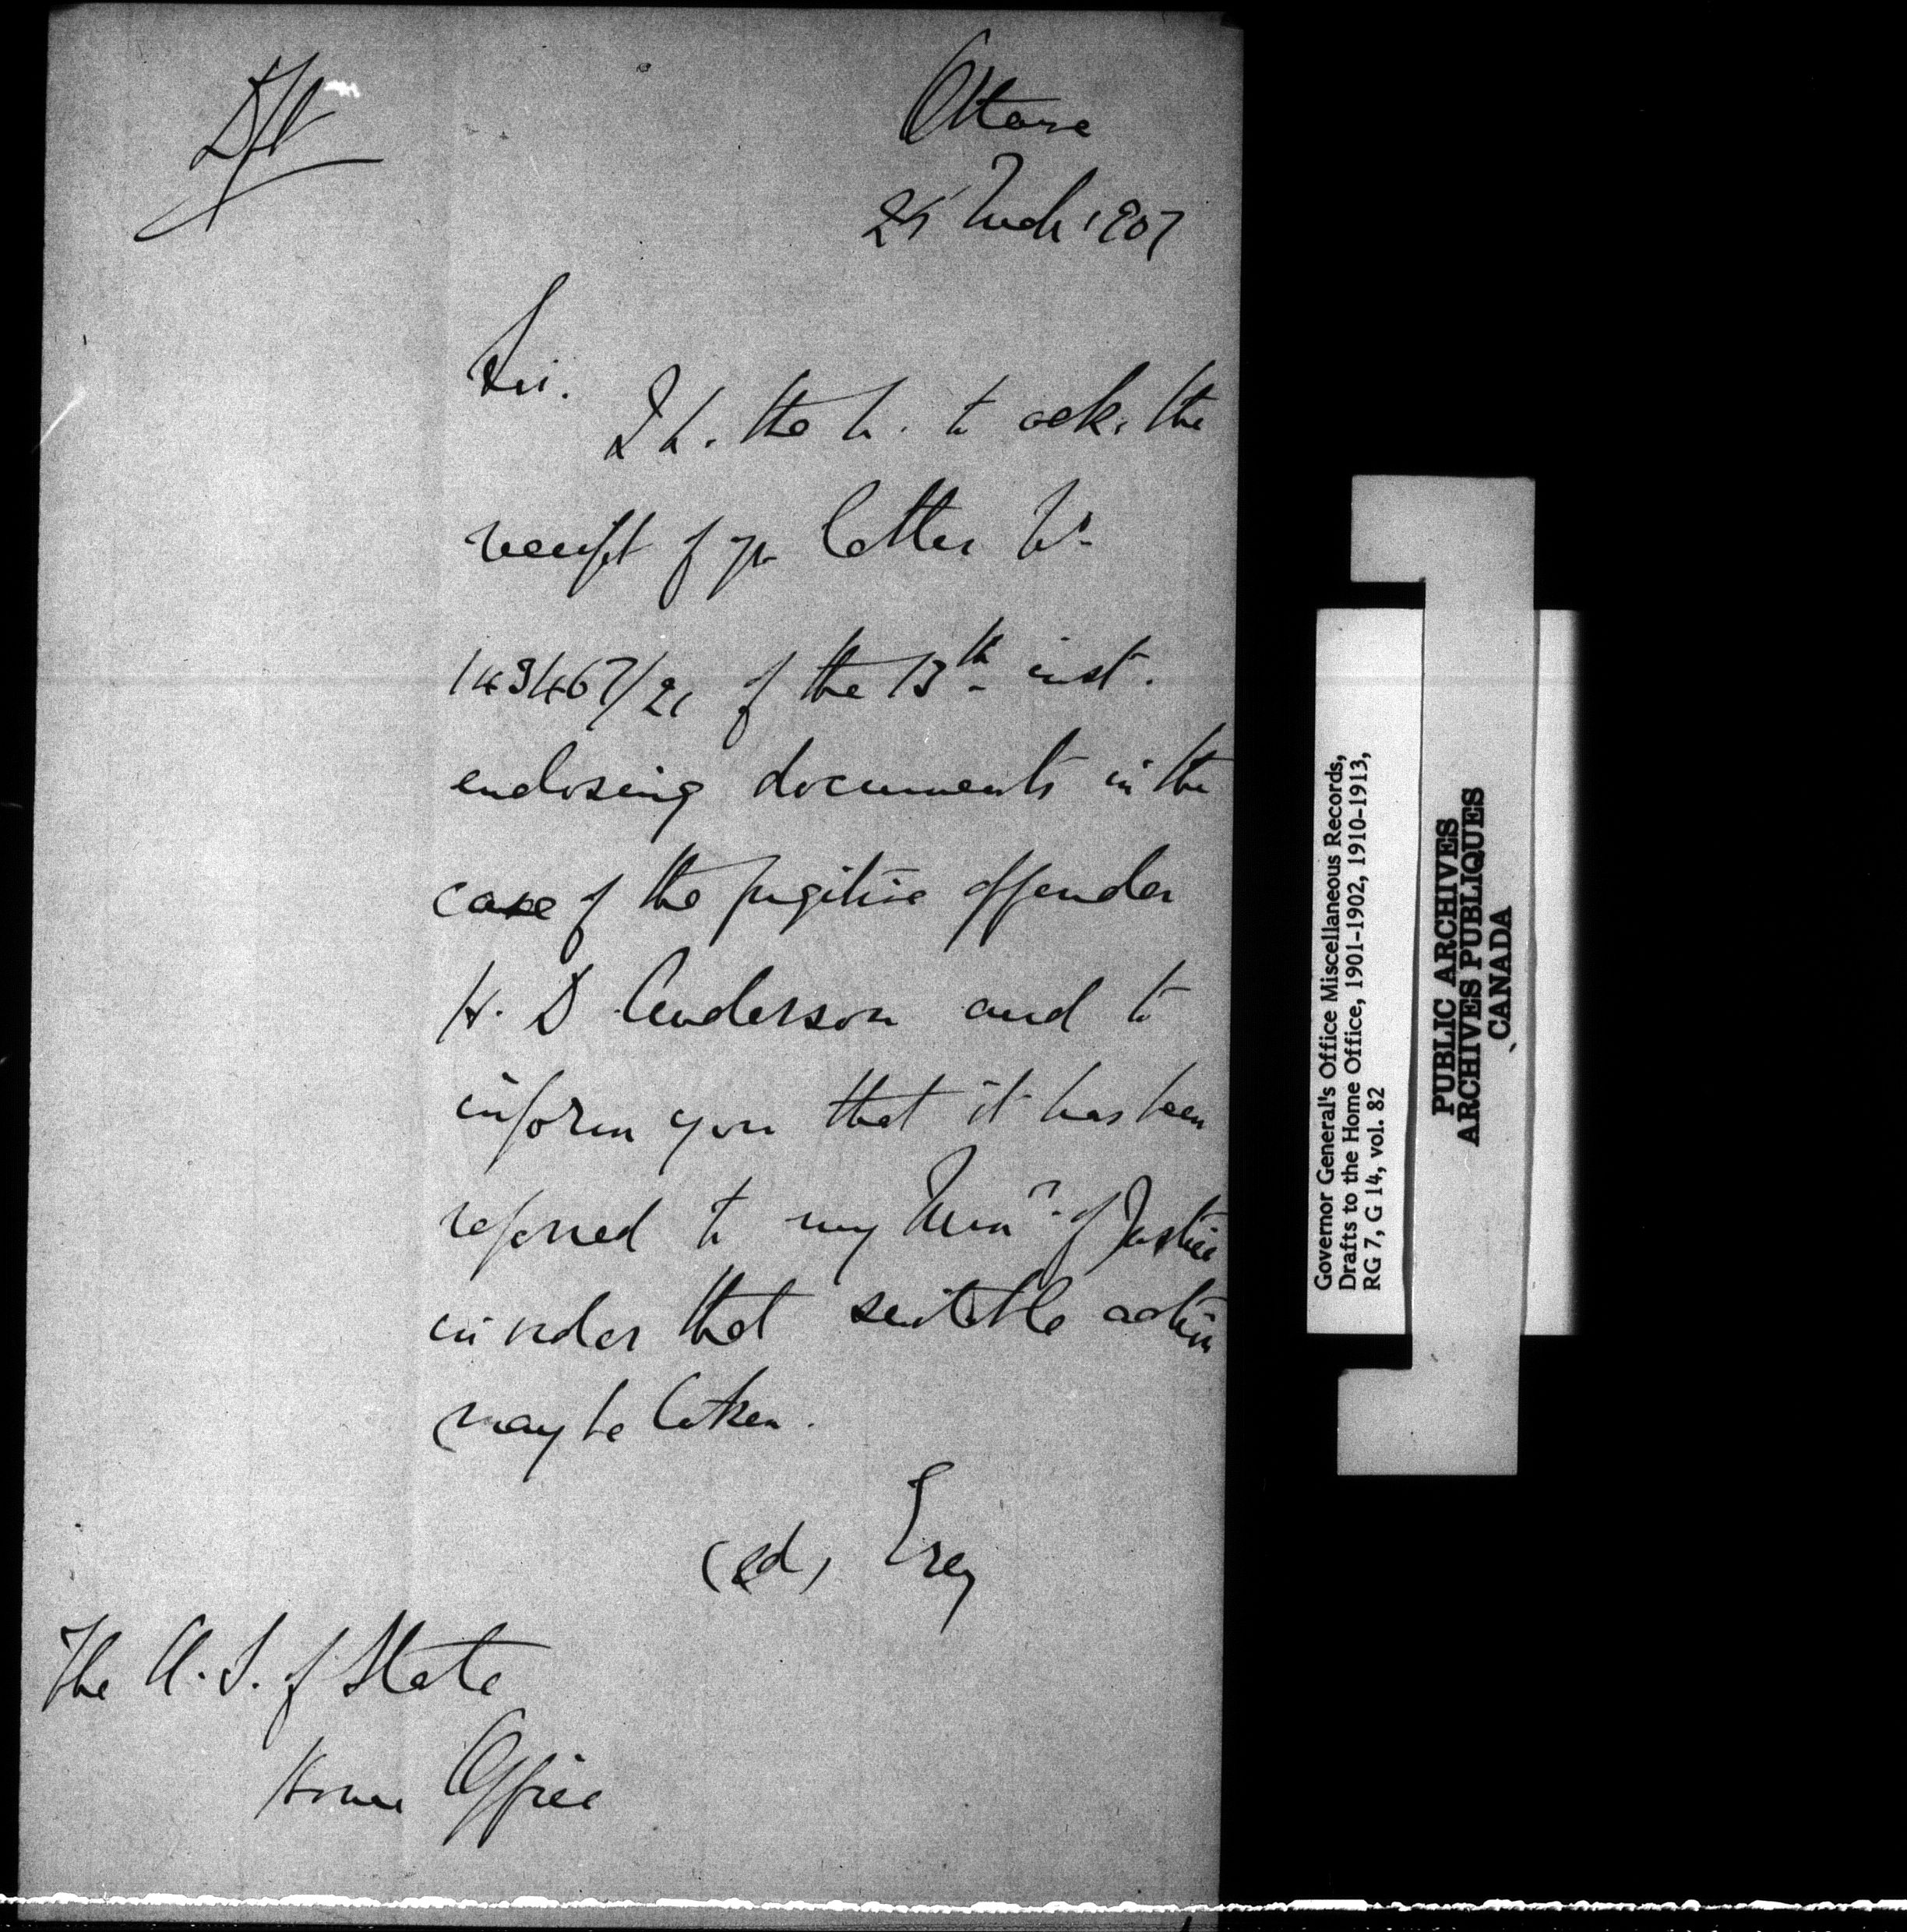 Dft
Ottawa
25 Mch 1907
Sir.
I h. the h. to ack. the
receipt of yr letter No.
143467/21 of the 13th inst.
enclosing documents in the
case of the fugitive offender
H. D Anderson and to
inform you that it has been
referred to my Minr. of Justice
in order that suitable action
may be taken.
(sd) Grey
The U. S. of State
Home Office
Governor General's Office Miscellaneous Records,
Drafts to the Home Office, 1901-1902, 1910-1913,
RG 7, G 14, vol. 82
PUBLIC ARCHIVES
ARCHIVES PUBLIQUES
CANADA